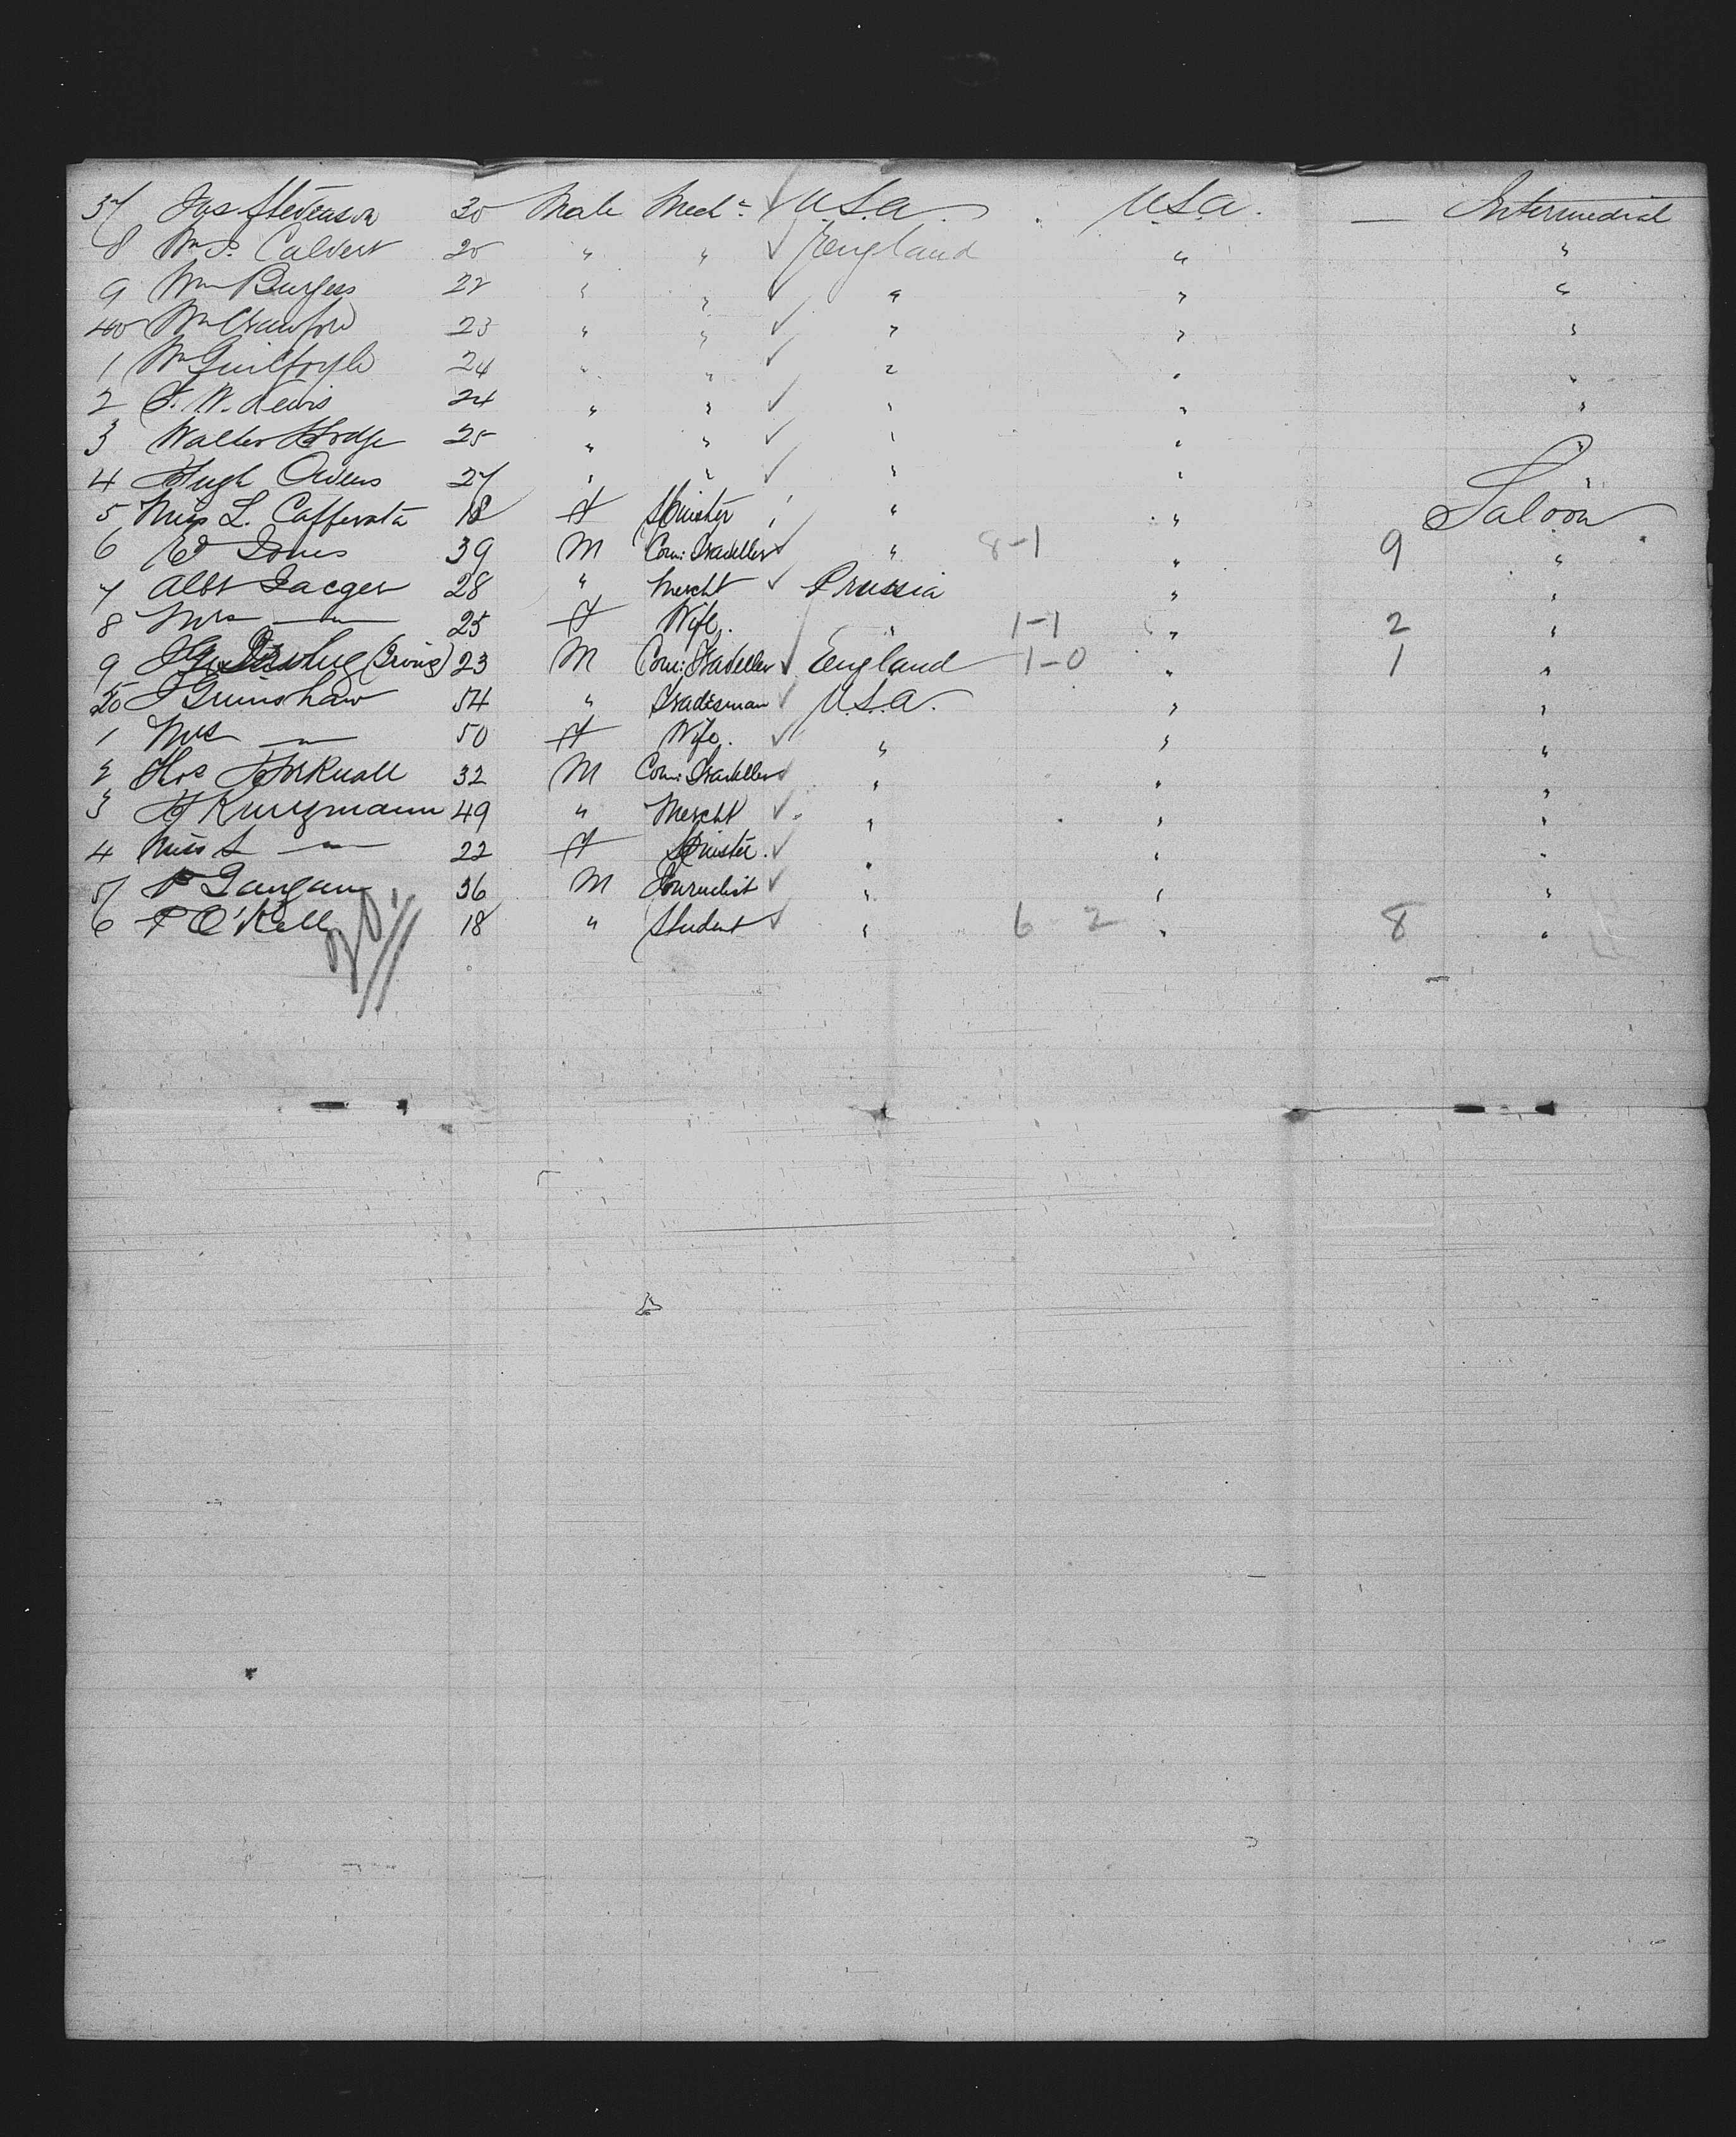 37 Jas Stevenson 30 Male Mech: ✓ U.S.a. U.S.a. — Intermedial
8 Wm S. Calvert 25 " " ✓ England " "
9 Wm Burgess 22 " " ✓ " " "
40 Wm Crawford 23 " " ✓ " " "
1 Wm Guilfoyle 24 " " ✓ " " "
2 J. W. Lewis 24 " " ✓ " " "
3 Walter Hodge 25 " " ✓ " " "
4 Hugh Owens 27 " " ✓ " " "
5 Miss L. Cafferata 18 F Spinster " " Saloon
6 Ed Jones 39 M Com: Traveller ✓ " 8-1 " 9 "
7 Albt Jaeger 28 " Mercht ✓ Prussia " "
8 Mrs — 25 F Wife. " 1-1 " 2 "
9 (Irving) 23 M Com: Traveller ✓ England 1-0 " 1 "
50 J Grimshaw 54 " Tradesman ✓ U.S.a. " "
1 Mrs — 50 F Wife. ✓ " " "
2 Hos 32 M Com: Traveller ✓ " " "
3 H Kurzmann 49 " Mercht ✓ " " "
4 Miss S — 22 F Spinster. ✓ " " "
5 P Gaugan 36 M Journalist ✓ " " "
6 P O'Kell 18 " Student ✓ " 6 2 " 8 "